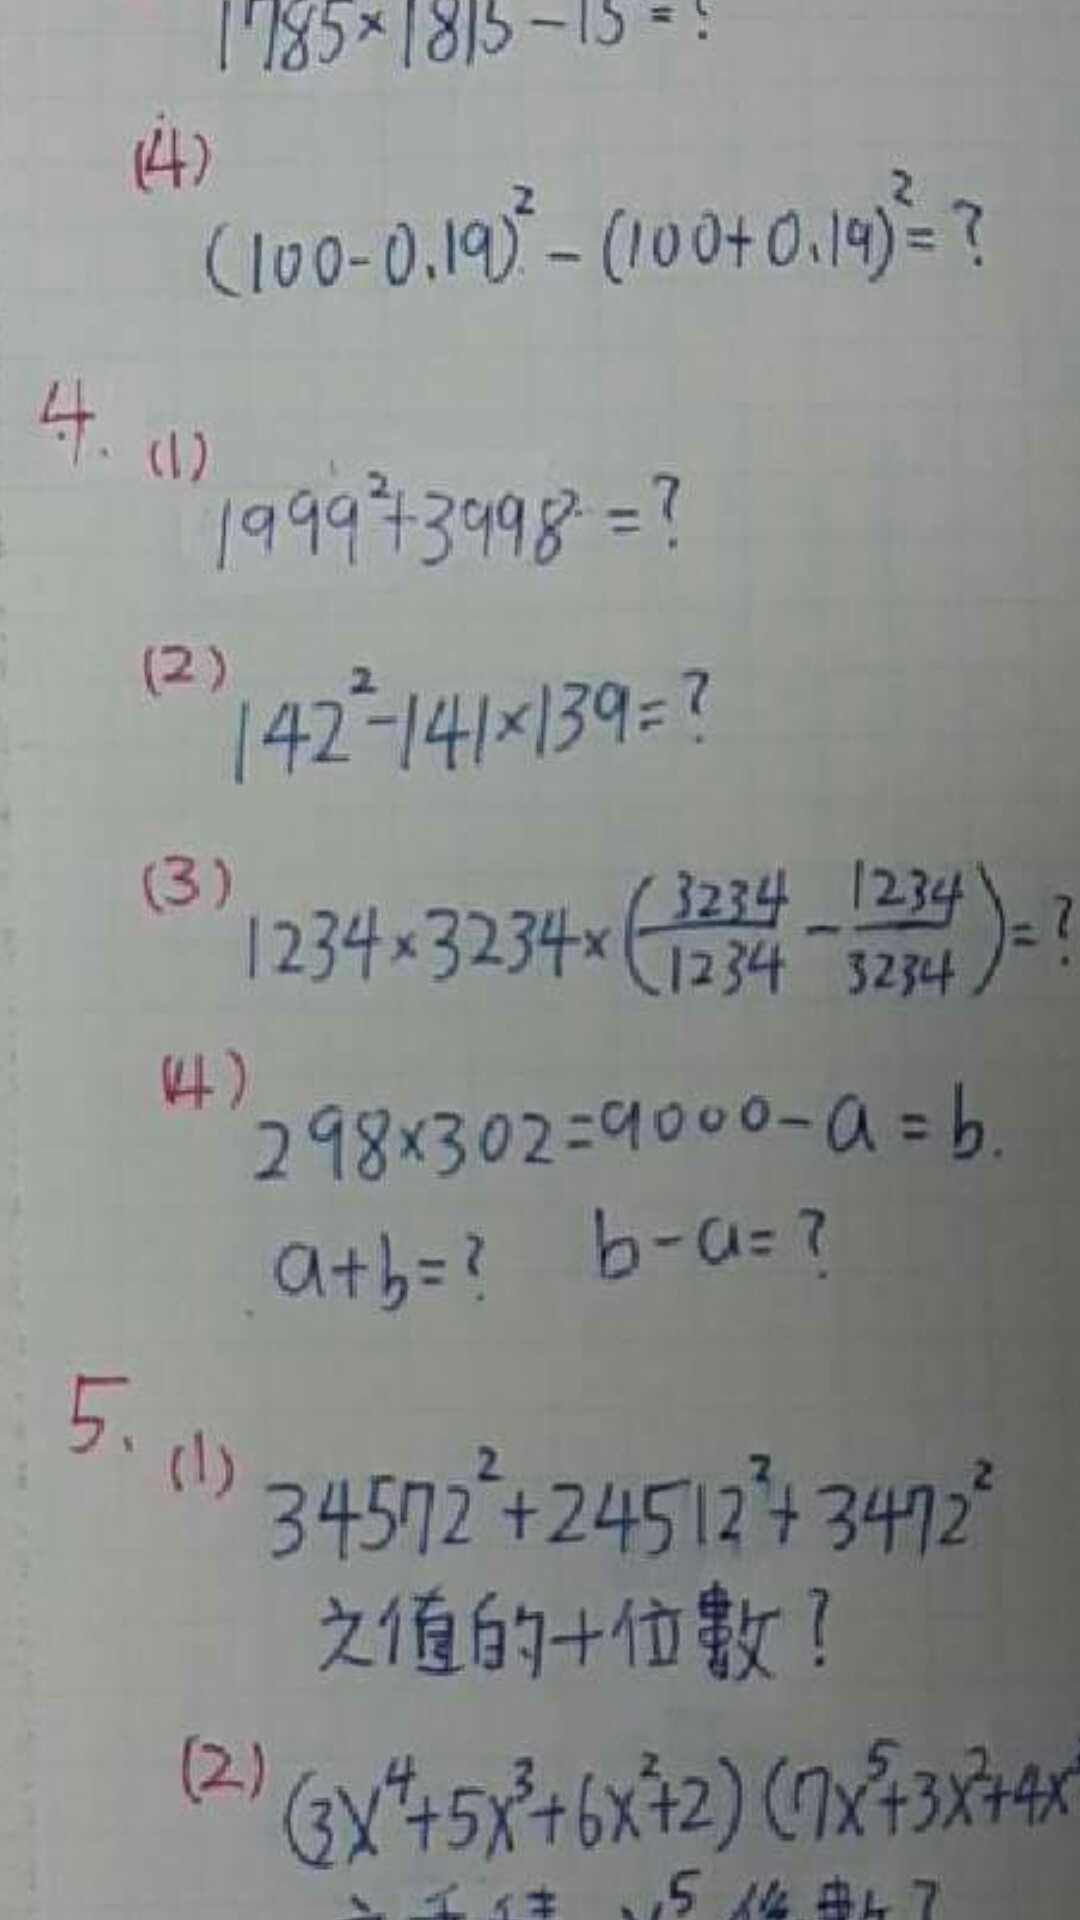 1785×1815-15=?
(4)
(100-0.19)²-(100+0.19)²=?
4. (1)
1999²+3998=?
(2)
142²-141×139=?
(3)
1234×3234×(3234/1234-1234/3234)=?
(4)
298×302=9000-a=b.
a+b=? b-a=?
5. (1)
34572²+24512²+3472²
之值的十位數?
(2) (3x⁴+5x³+6x²+2)(7x⁵+3x²+4x
x⁵係數?